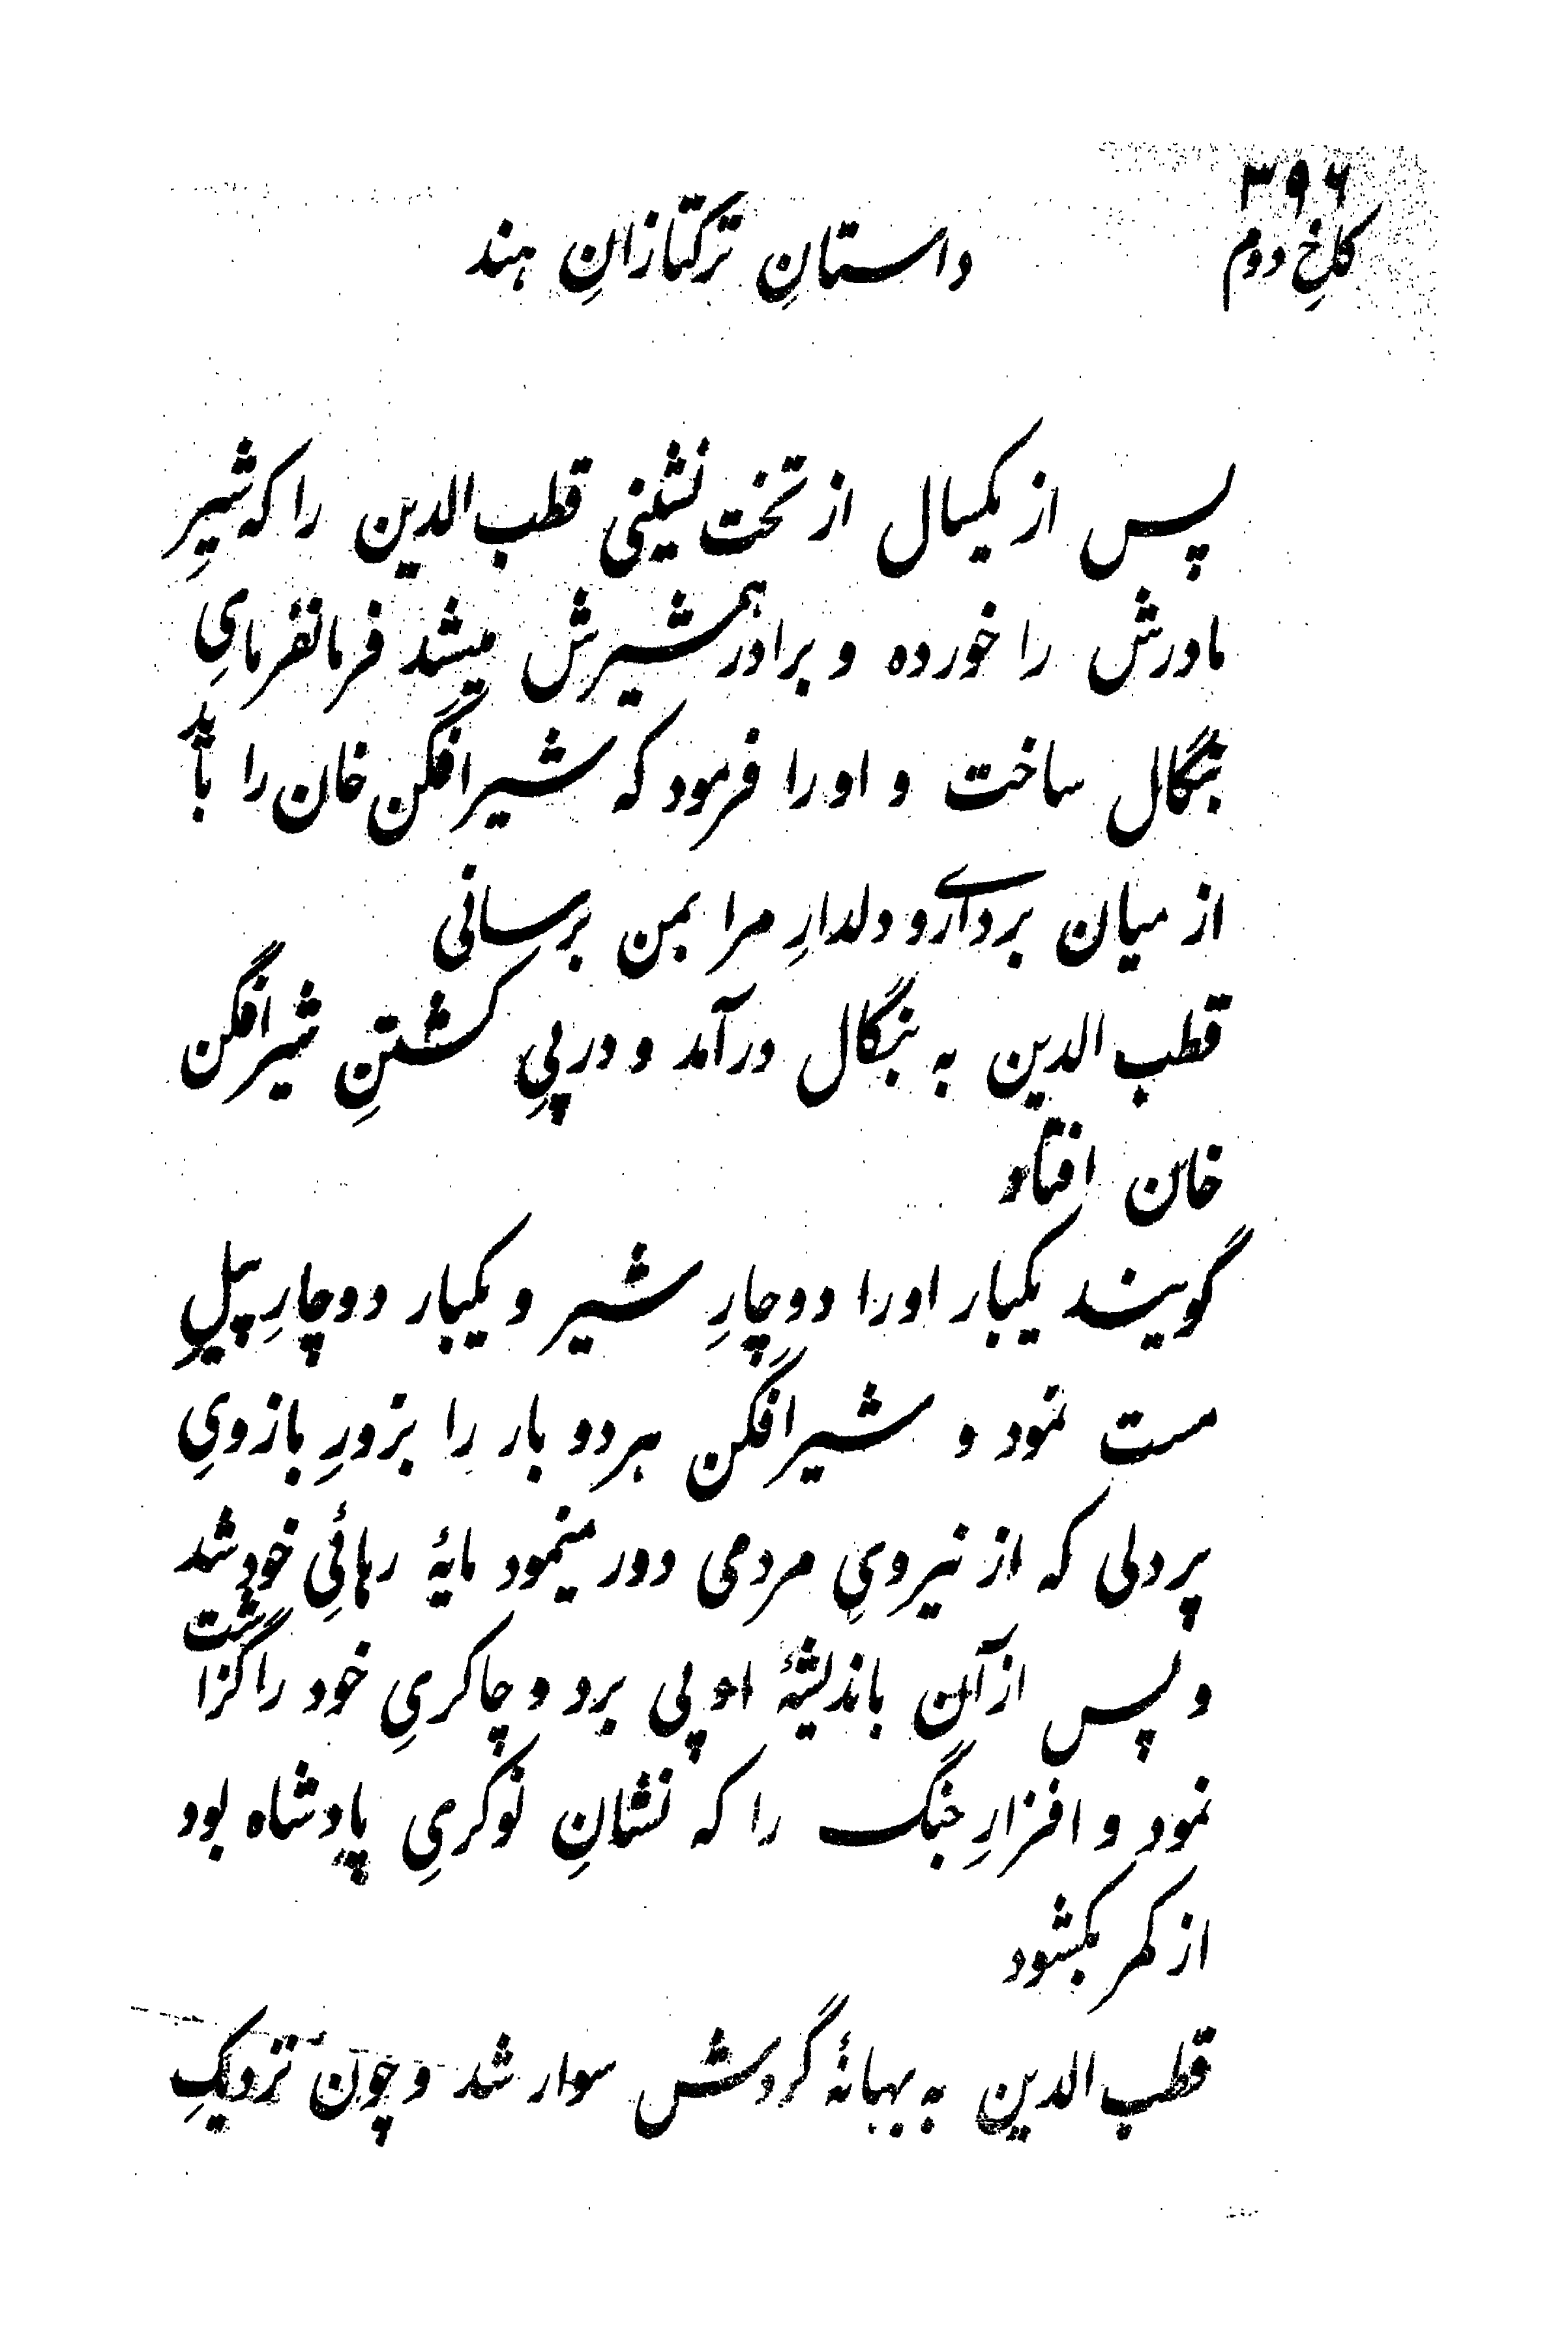 ۳۹۶
کاخ دوم
داستانِ ترکتازانِ هند
پس از یکسال از تخت نشینی قطب الدین را که شیرِ
مادرش را خورده و برادر همشیرش میشد فرمانفرمایِ
بنگال ساخت و اورا فرمود که شیر افگن خان را باید
از میان برداری و دلدارِ مرا بمن برسانی
قطب الدین به بنگال درآمد و در پیِ کشتنِ شیر افگن
خان افتاد
گویند یکبار اورا دوچارِ شیر و یکبار دوچارِ پیلِ
مست نمود و شیر افگن هر دو بار را بزورِ بازویِ
پردلی که از نیرویِ مردمی دور مینمود مایۀ رهائیِ خود شد
و پس از آن باندیشۀ او پی برد و چاکریِ خود را گزاشت
نمود و افزارِ جنگ را که نشانِ نوکریِ پادشاه بود
از کمر بکشود
قطب الدین به بهانۀ گردش سوار شد و چون نزدیکِ